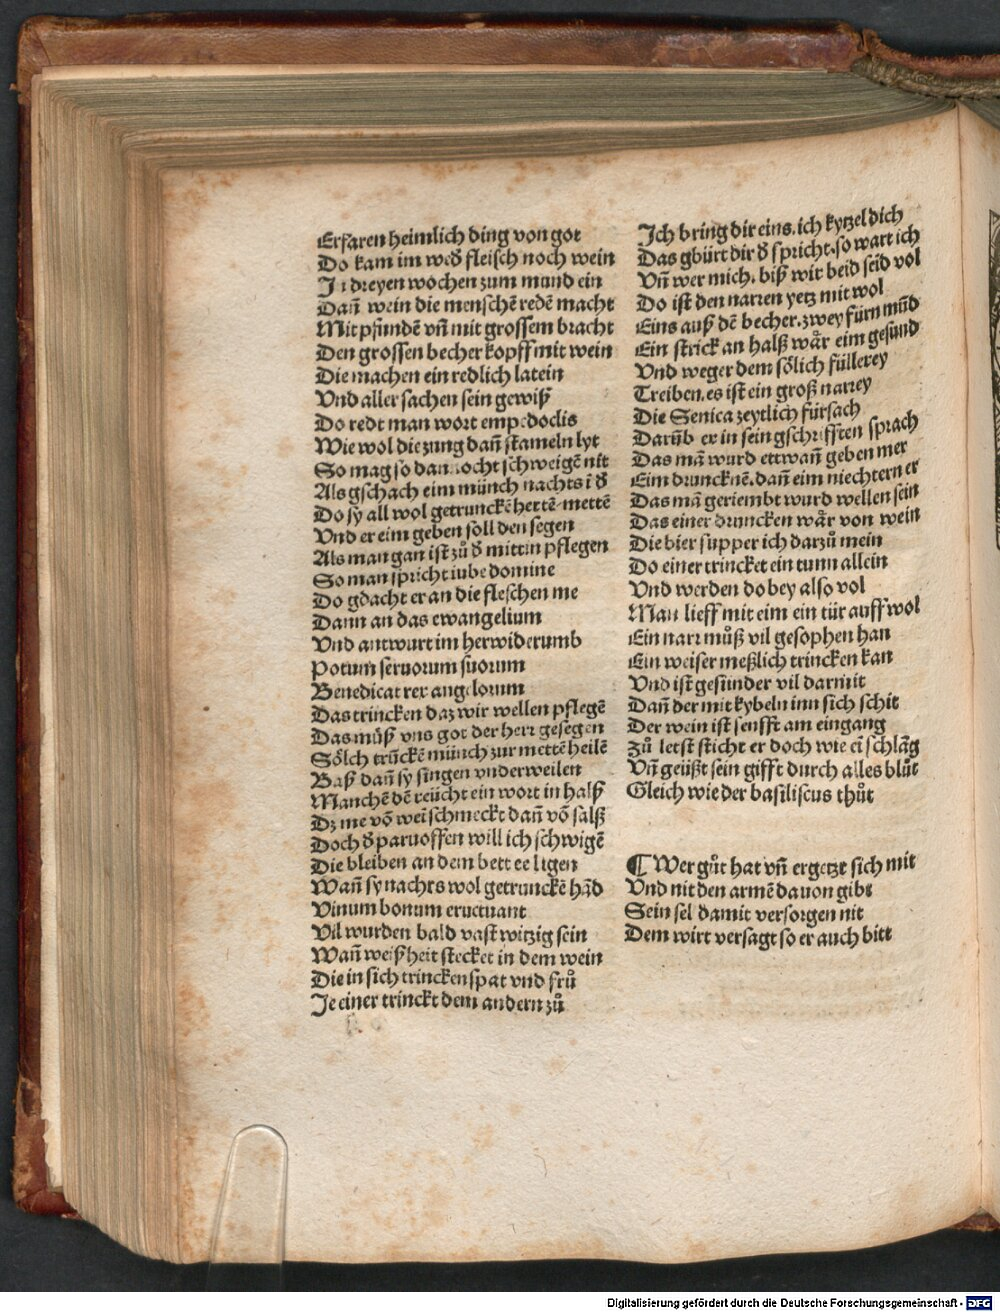 Erfaren heimlich ding von got
Do kam im wed̕ fleisch noch wein
In dreyen wochen zum mund ein
Dañ wein die menschē redē macht
Mit pfündē vñ mit grossem bracht
Den grossen becher kopff mit wein
Die machen ein redlich latein
Vnd aller sachen sein gewiß
Do redt man wort empedoclis
Wie wol die zung dañ stameln lyt
So mag so dannocht schweigē nit
Als gschach eim münch nachts ī d̕
Do sy all wol getrunckē hertē mettē
Vnd er eim geben soll den segen
Als man gan ist zů d̕ mittin pflegen
So man spricht iube domine
Do gdacht er an die fleschen me
Dann an das ewangelium
Vnd antwurt im herwiderumb
Potum seruorum suorum
Benedicat rex angelorum
Das trincken daz wir wellen pflegē
Das můß vns got der herr gesegen
Sölch trūckē münch zur mettē heilē
Baß dañ sy singen vnderweilen
Manchē dē reücht ein wort in halß
Dz me vō wei schmeckt dañ vō salß
Doch d̕ paruossen will ich schwigē
Die bleiben an dem bett ee ligen
Wañ sy nachts wol getrunckē hād
Vinum bonum eructuant
Vil wurden bald vast witzig sein
Wañ weißheit stecket in dem wein
Die in sich trincken spat vnd frů
Je einer trinckt dem andern zů
Ich bring dir eins, ich kytzel dich
Das gbürt dir d̕ spricht, so wart ich
Vñ wer mich, biß wir beid seid vol
Do ist den narren yetz mit wol
Eins auß dē becher, zwey fürn mūd
Ein strick an halß wår eim gesund
Vnd weger dem sölich füllerey
Treiben, es ist ein groß narrey
Die Senica zeytlich fürsach
Darūb er in sein gschrifften sprach
Das mā wurd ettwañ geben mer
Eim druncknē, dañ eim niechtern er
Das mā geriembt wurd wellen sein
Das einer druncken wår von wein
Die bier supper ich darzů mein
Do einer trincket ein tunn allein
Vnd werden do bey also vol
Man lieff mit eim ein tür auff wol
Ein narr můß vil gesophen han
Ein weiser meßlich trincken kan
Vnd ist gesünder vil darmit
Dañ der mit kybeln inn sich schit
Der wein ist senfft am eingang
Zů letst sticht er doch wie eī schlāg
Vñ geüßt sein gifft durch alles blůt
Gleich wie der basiliscus thůt
¶ Wer gůt hat vñ ergetzt sich mit
Vnd nit den armē dauon gibt
Sein sel damit versorgen nit
Dem wirt versagt so er auch bitt
Digitalisierung gefördert durch die Deutsche Forschungsgemeinschaft - DFG